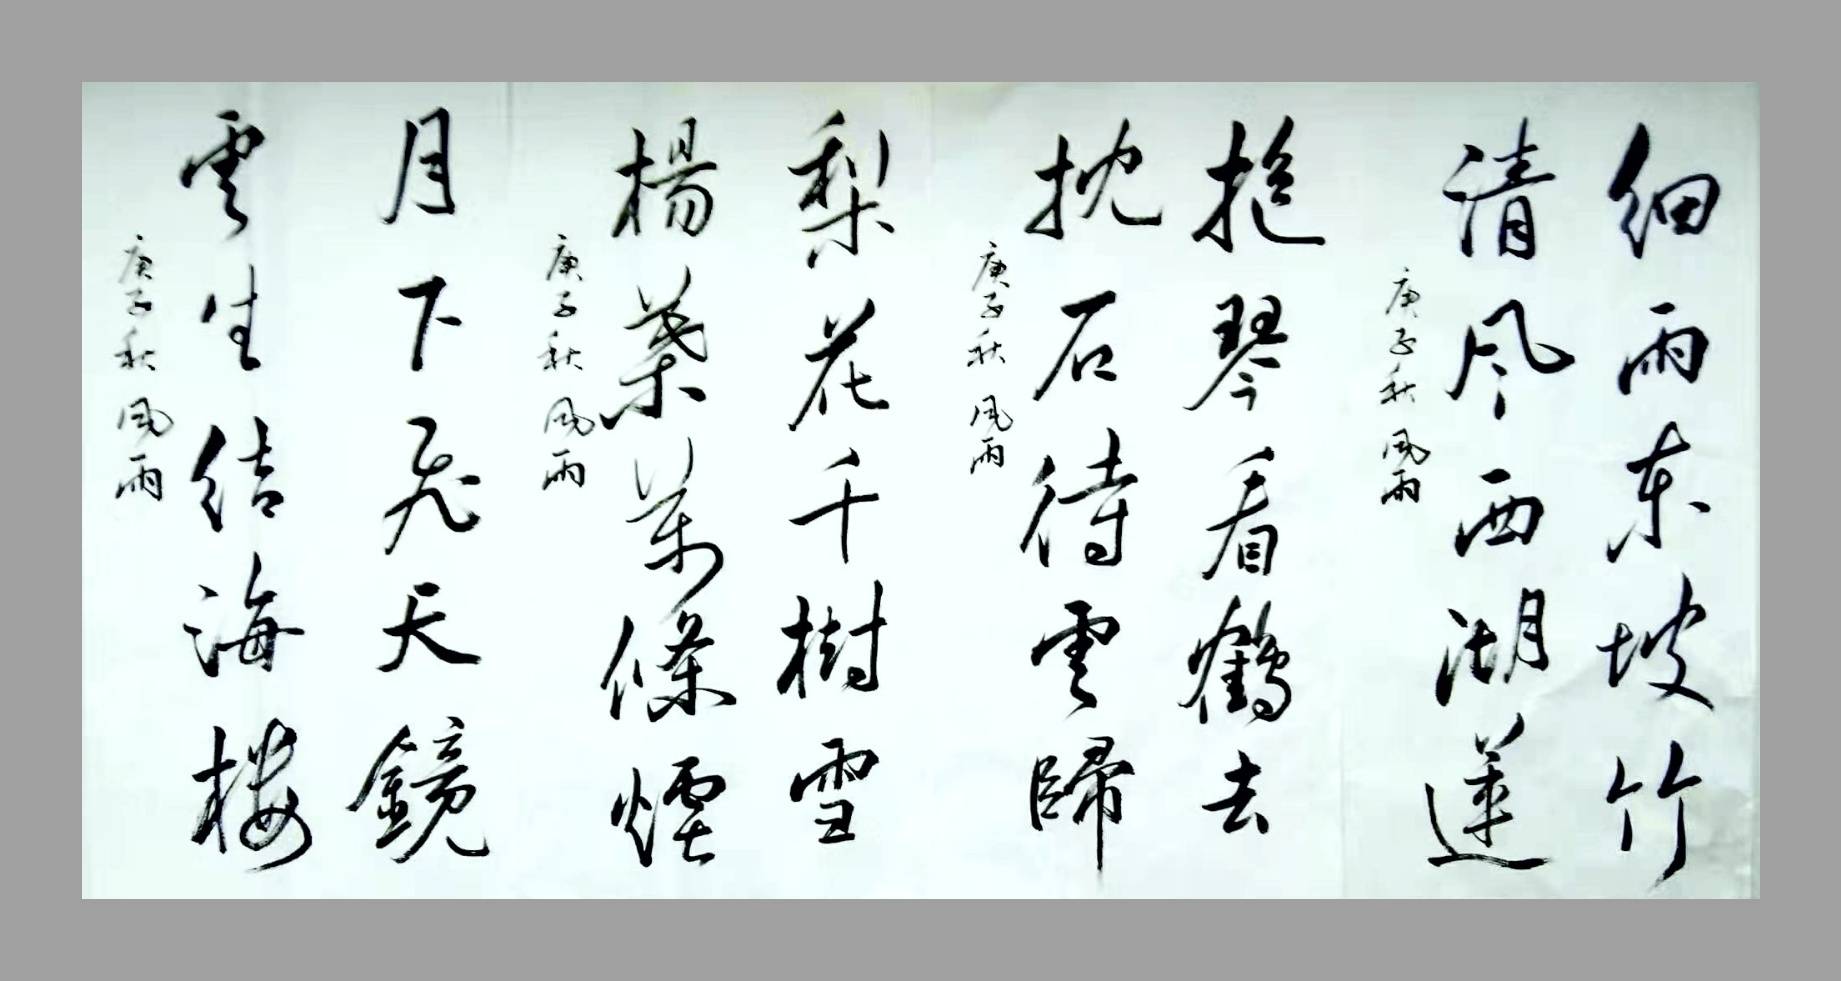 细雨东坡竹
清风西湖蓮
庚子秋 风雨
抱琴看鶴去
枕石待雲歸
庚子秋 风雨
梨花千樹雪
楊葉萬條煙
庚子秋 风雨
月下飞天鏡
雲生结海楼
庚子秋 风雨